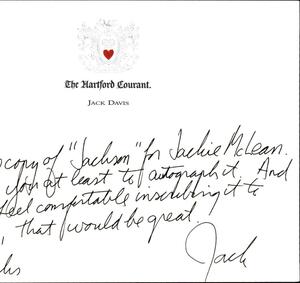 The Hartford Courant.
JACK DAVIS
copy of "Jackson" for Jackie McLean.
you at least to autograph it. And
feel comfortable inscribing it to
" that would be great.
Jack